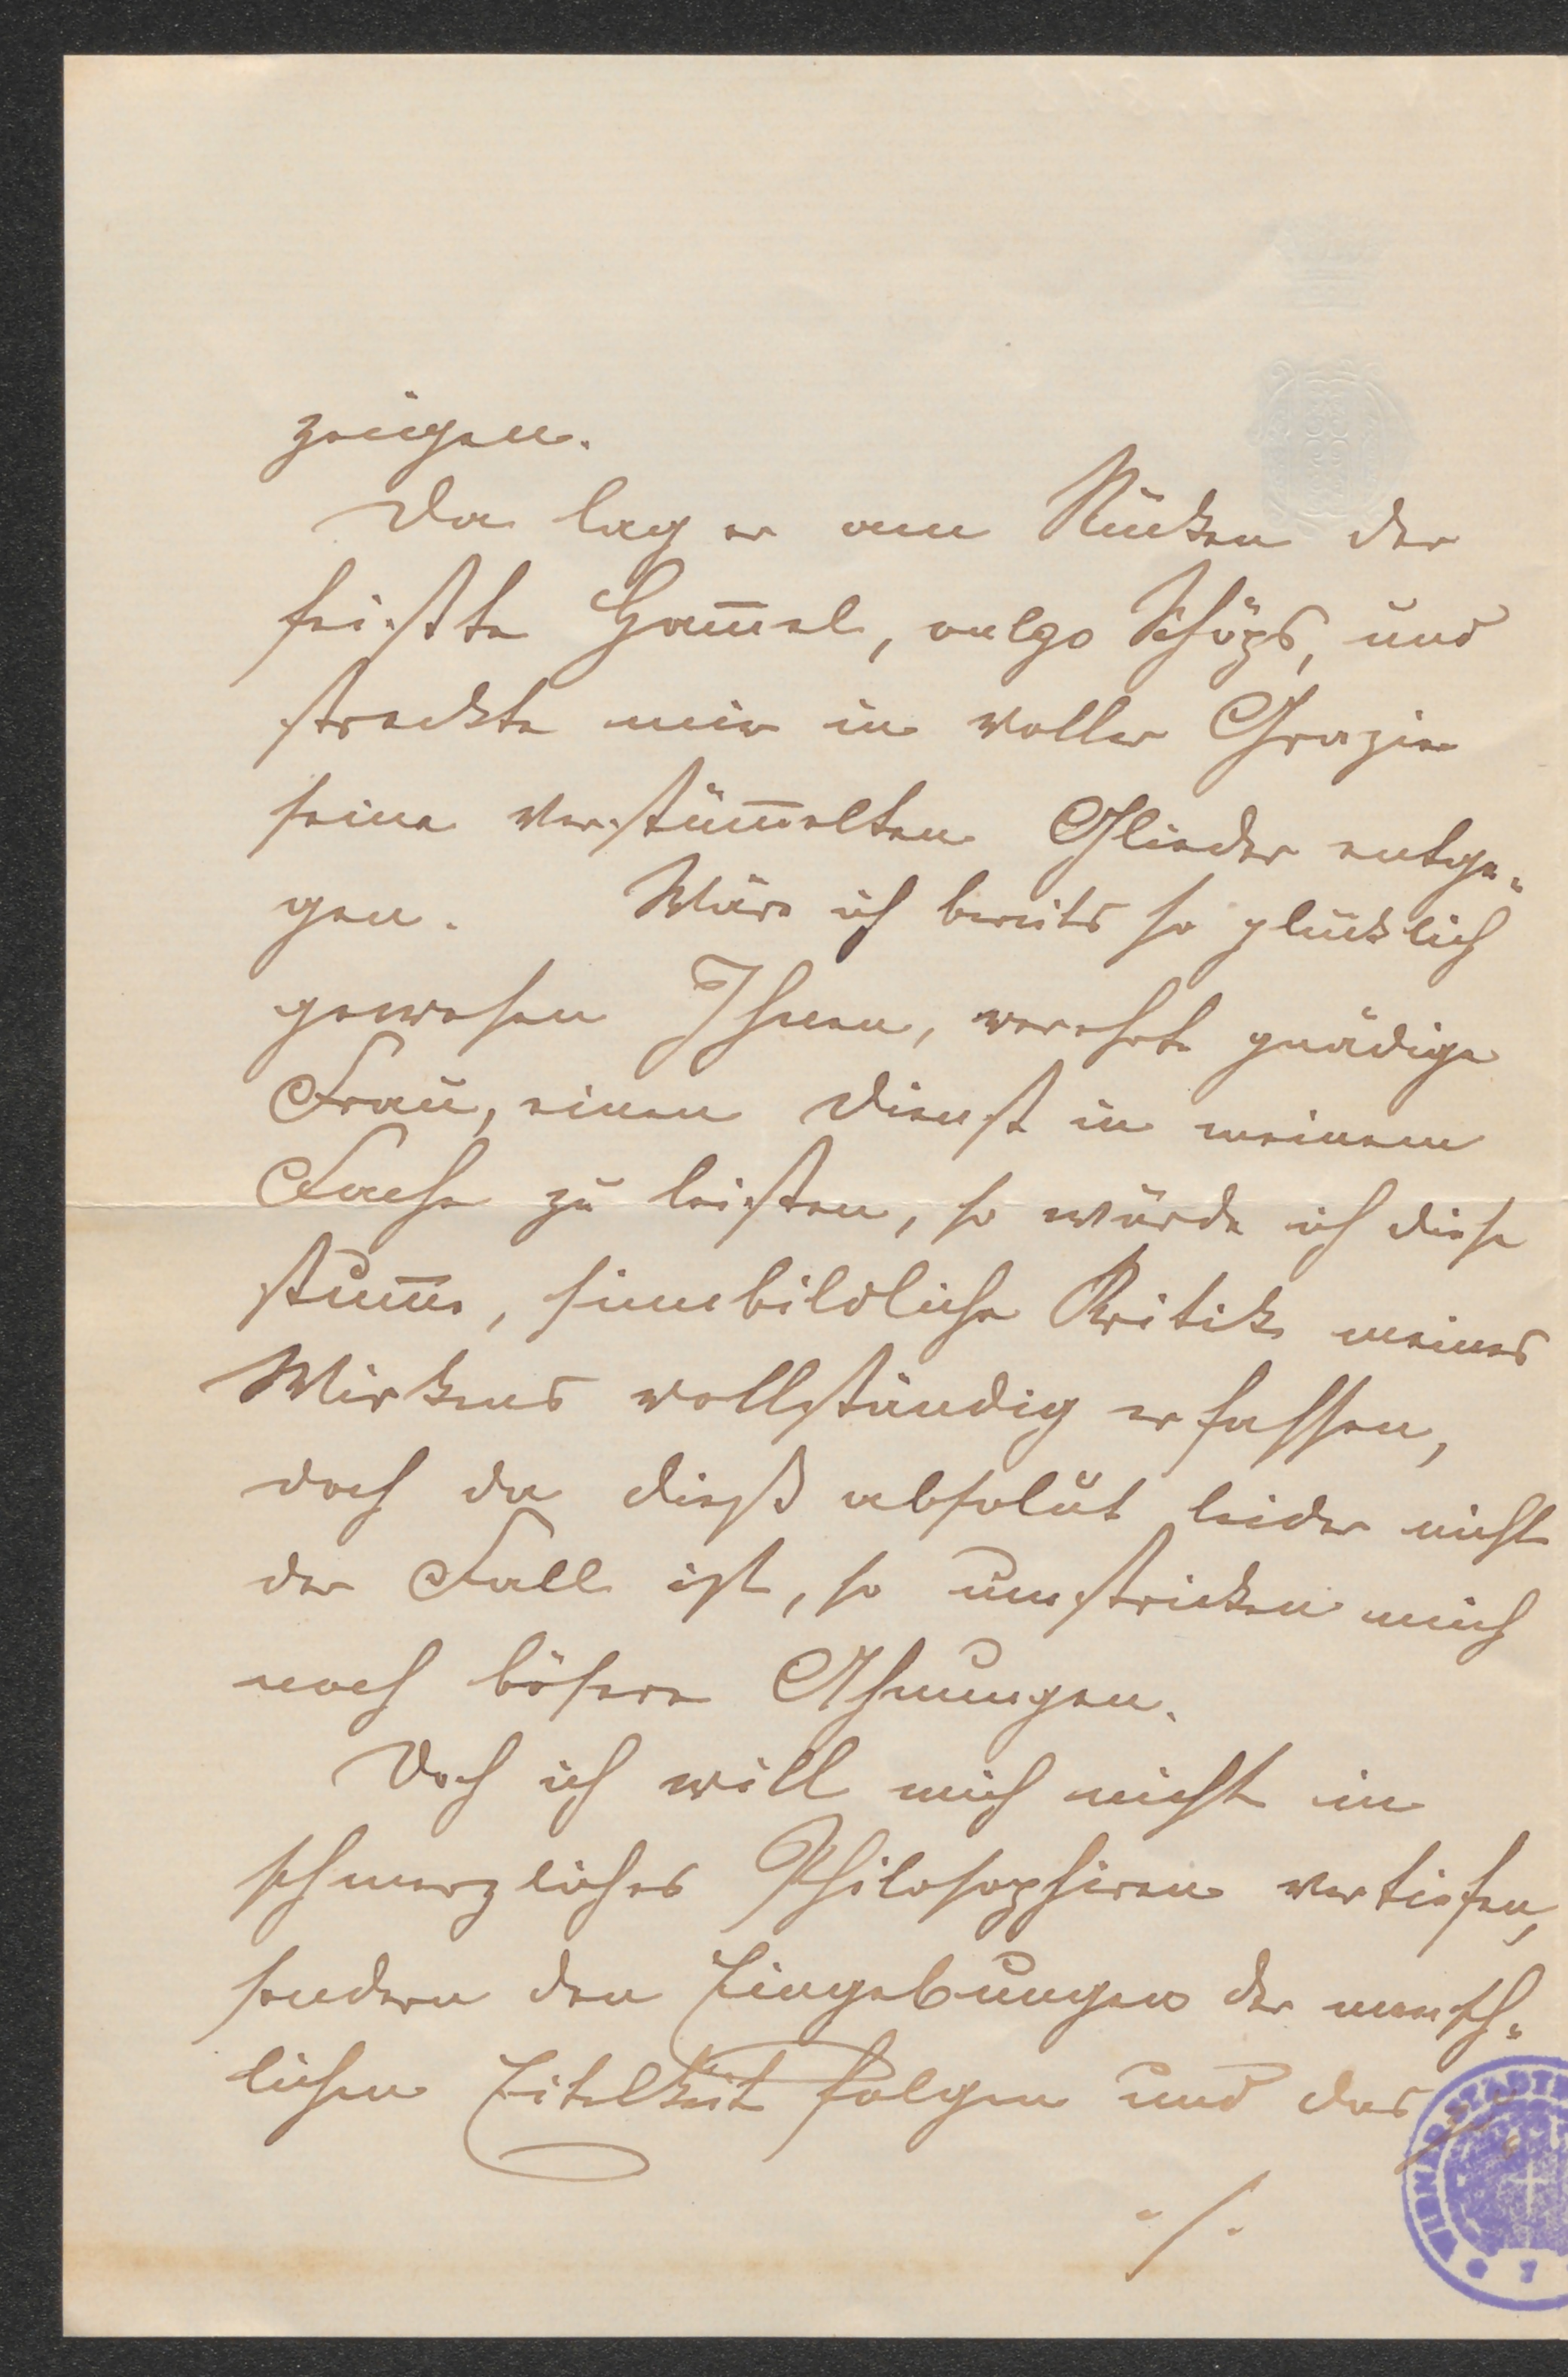 zeugen.
Da lag er am Rücken der
feiste Ham̅el, vulgo Schöps, und
streckte mir in voller Grazie
seine verstüm̅elten Glieder entge-
gen. Wäre ich bereits so glücklich
gewesen Ihnen, verehrte gnädige
Frau, einen Dienst in meinem
Fache zu leisten, so würde ich diese
stum̅e, sinnbildliche Kritik meines
Wirkens vollständig erfassen,
doch da dieß absolut leider nicht
der Fall ist, so umstricken mich
noch bösere Ahnungen.
Doch ich will mich nicht in
schmerzliches Philosophiren vertiefen,
sondern den Eingebungen der mensch-
lichen Eitelkeit folgen und das
./.